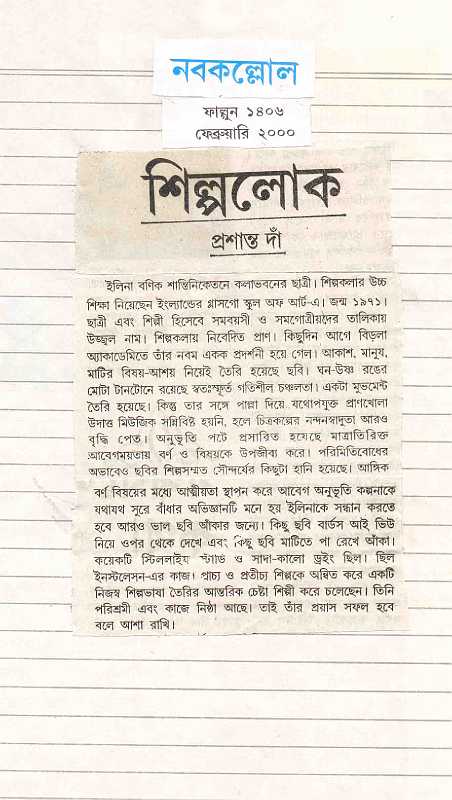 নবকল্লোল
ফাল্গুন ১৪০৬
ফেব্রুয়ারি ২০০০
শিল্পলোক
প্রশান্ত দাঁ
ইলিনা বণিক শান্তিনিকেতনে কলাভবনের ছাত্রী। শিল্পকলার উচ্চ
শিক্ষা নিয়েছেন ইংল্যান্ডের গ্লাসগো স্কুল অফ আর্ট-এ। জন্ম ১৯৭১।
ছাত্রী এবং শিল্পী হিসেবে সমবয়সী ও সমগোত্রীয়দের তালিকায়
উজ্জ্বল নাম। শিল্পকলায় নিবেদিত প্রাণ। কিছুদিন আগে বিড়লা
অ্যাকাডেমিতে তাঁর নবম একক প্রদর্শনী হয়ে গেল। আকাশ, মানুষ,
মাটির বিষয়-আশয় নিয়েই তৈরি হয়েছে ছবি। ঘন-উষ্ণ রঙের
মোটা টানটোনে রয়েছে স্বতঃস্ফূর্ত গতিশীল চঞ্চলতা। একটা মুভমেন্ট
তৈরি হয়েছে। কিন্তু তার সঙ্গে পাল্লা দিয়ে যথোপযুক্ত প্রাণখোলা
উদাত্ত মিউজিক সন্নিবিষ্ট হয়নি, হলে চিত্রকল্পের নন্দনস্বাদুতা আরও
বৃদ্ধি পেত। অনুভূতি পটে প্রসারিত হযেছে মাত্রাতিরিক্ত
আবেগময়তায় বর্ণ ও বিষয়কে উপজীব্য করে। পরিমিতিবোধের
অভাবেও ছবির শিল্পসম্মত সৌন্দর্যের কিছুটা হানি হয়েছে। আঙ্গিক
বর্ণ বিষয়ের মধ্যে আত্মীয়তা স্থাপন করে আবেগ অনুভূতি কল্পনাকে
যথাযথ সুরে বাঁধার অভিজ্ঞানটি মনে হয় ইলিনাকে সন্ধান করতে
হবে আরও ভাল ছবি আঁকার জন্যে। কিছু ছবি বার্ডস আই ভিউ
নিয়ে ওপর থেকে দেখে এবং কিছু ছবি মাটিতে পা রেখে আঁকা।
কয়েকটি স্টিললাইফ স্টাডি ও সাদা-কালো ড্রইং ছিল। ছিল
ইনস্টলেসন-এর কাজ। প্রাচ্য ও প্রতীচ্য শিল্পকে অন্বিত করে একটি
নিজস্ব শিল্পভাষা তৈরির আন্তরিক চেষ্টা শিল্পী করে চলেছেন। তিনি
পরিশ্রমী এবং কাজে নিষ্ঠা আছে। তাই তাঁর প্রয়াস সফল হবে
বলে আশা রাখি।